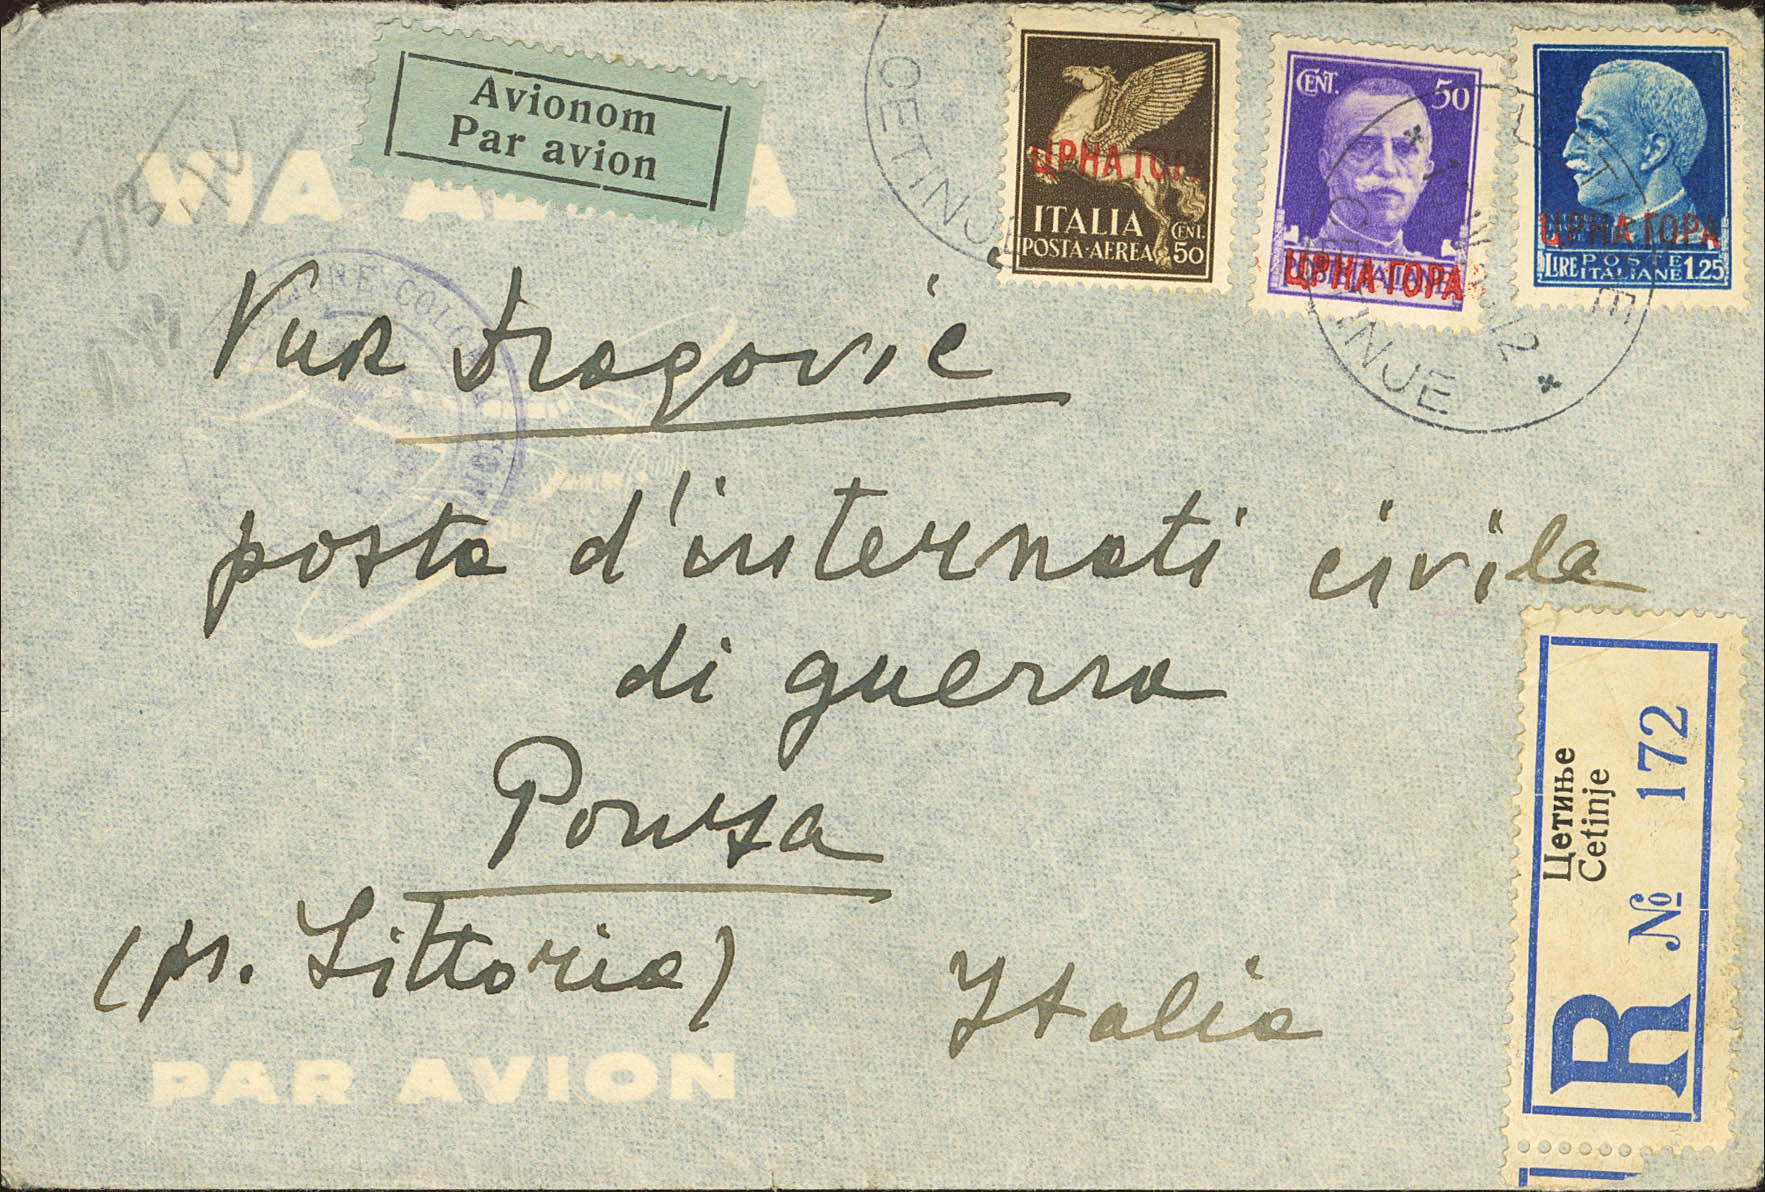 VIA AEREA
Avionom
Par avion
CETINJE
ЦРНА ГОРА
ITALIA
POSTA·AEREA
CENT. 50
CENT. 50
ЦРНА ГОРА
ЦРНА ГОРА
LIRE POSTE ITALIANE 1.25
CETINJE
Vuk Dragović
posta d'internati civila
di guerra
Ponza
(pr. Littoria)
Italia
PAR AVION
Цетиње
Cetinje
R № 172